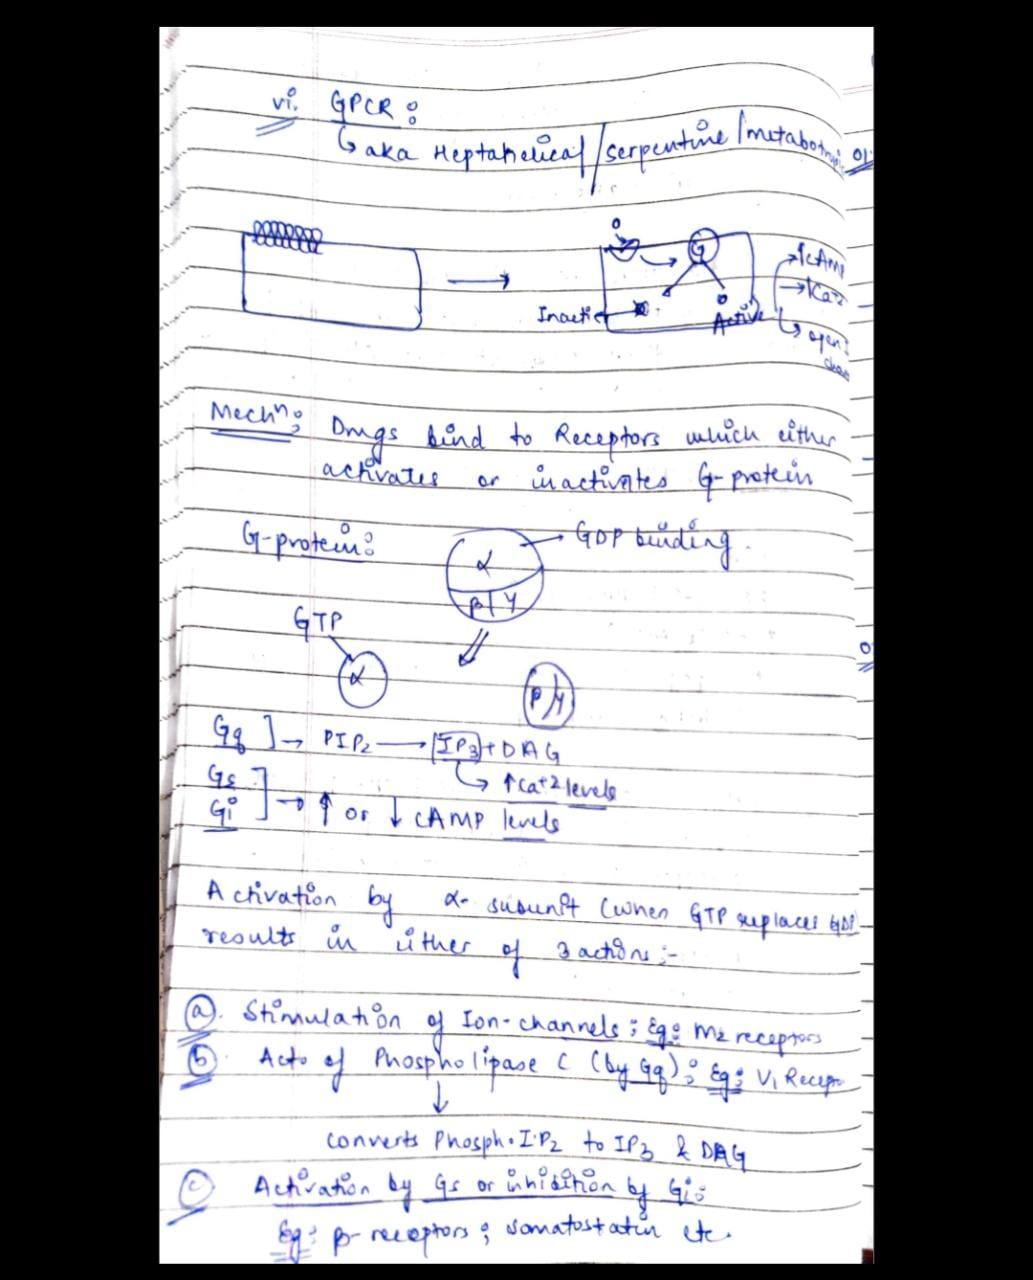 vi. GPCR:
↳ aka Heptahelical/serpentine/metabotropic
01
G
↑cAmp
→↑Ca+2
Active
↳ open I
Mechⁿ: Drugs bind to Receptors which either
activates or inactivates G-protein
G-protein: GDP binding
α
β/γ
GTP
α
β/γ
Gq ] → PIP₂ → IP₃ + DAG
↳ ↑Ca+2 levels
Gs
Gi ] → ↑ or ↓ cAMP levels
Activation by α- subunit (when GTP replaces GDP
results in either of 3 actions:-
(a). Stimulation of Ion-channels; Eg: M2 receptors
(b). Actⁿ of Phospholipase C (by Gq); Eg: V₁ Recep
↓
converts Phosph.I.P₂ to IP₃ & DAG
(c) Activation by Gs or inhibition by Gi:
Eg: β-receptors; somatostatin etc.